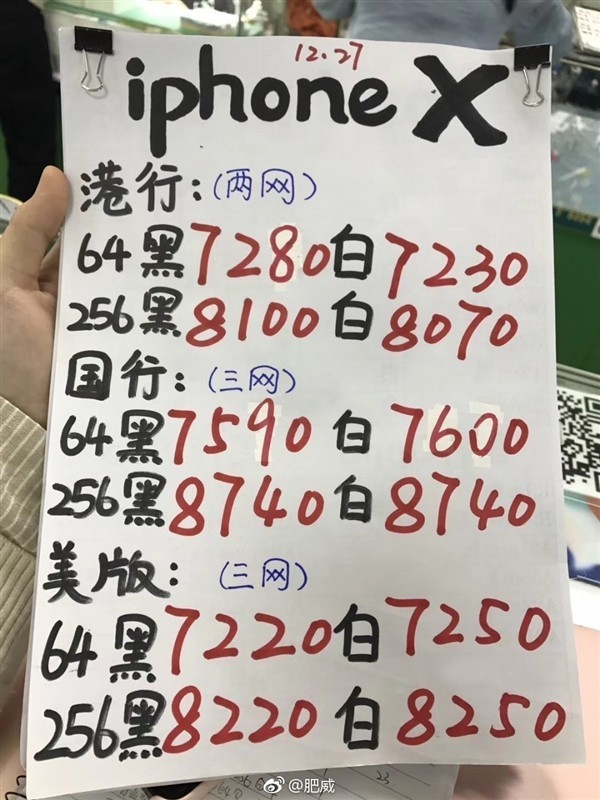 12.27
iphone X
港行:(两网)
64黑7280白7230
256黑8100白8070
国行:(三网)
64黑7590白7600
256黑8740白8740
美版:(三网)
64黑7220白7250
256黑8220白8250
@肥威